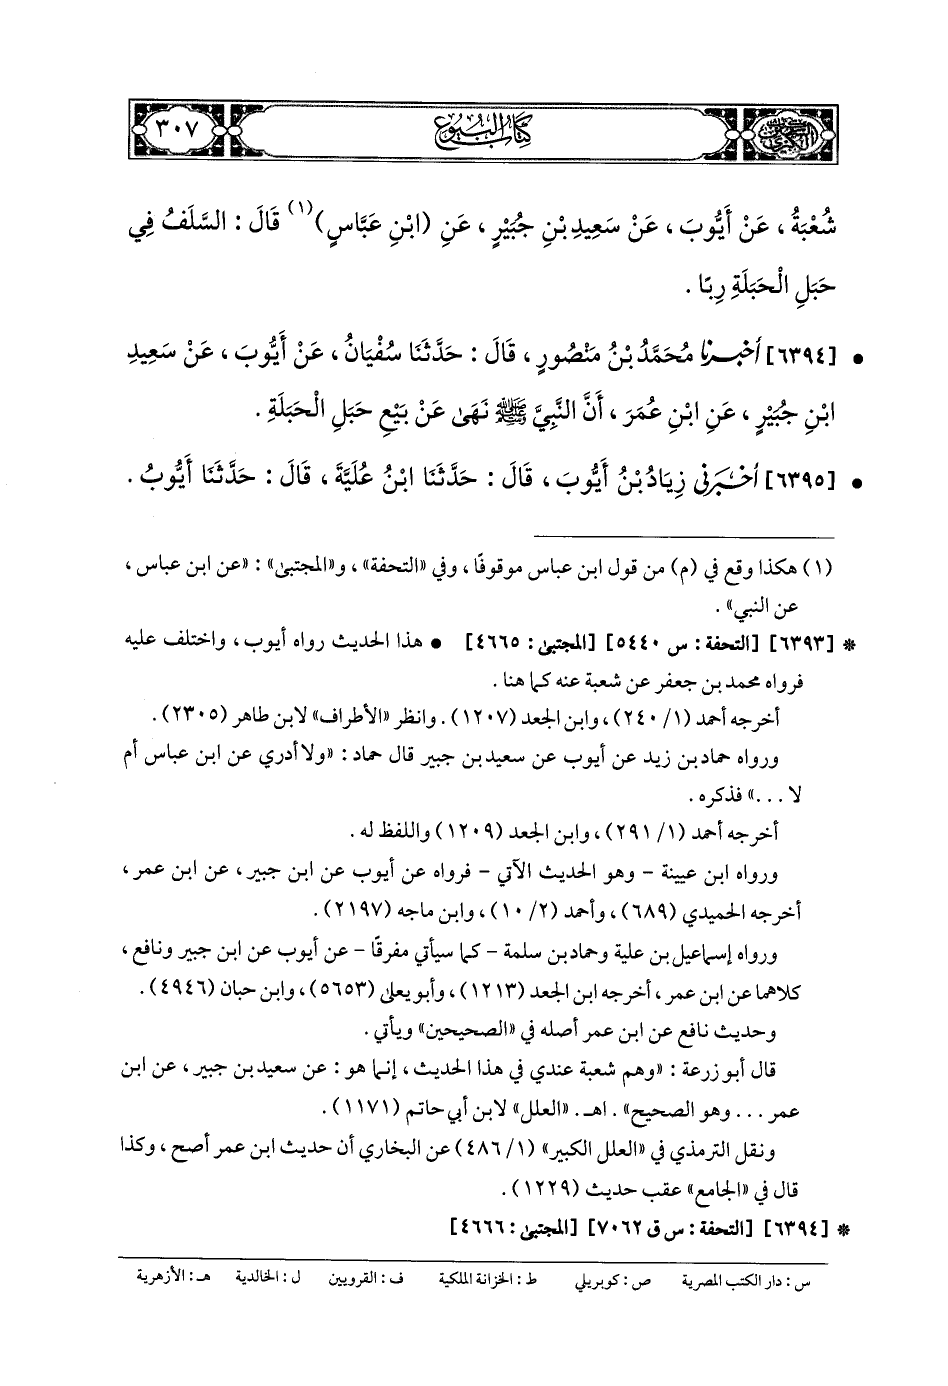 السنن الكبرى
كتاب البيوع
٣٠٧
شُعْبَةُ ، عَنْ أَيُّوبَ ، عَنْ سَعِيدِ بْنِ جُبَيْرٍ ، عَنِ (ابْنِ عَبَّاسٍ)(١) قَالَ : السَّلَفُ فِي
حَبَلِ الْحَبَلَةِ رِبًا .
• [٦٣٩٤] أَخْبَرَنَا مُحَمَّدُ بْنُ مَنْصُورٍ ، قَالَ : حَدَّثَنَا سُفْيَانُ ، عَنْ أَيُّوبَ ، عَنْ سَعِيدِ
ابْنِ جُبَيْرٍ ، عَنِ ابْنِ عُمَرَ ، أَنَّ النَّبِيَّ ﷺ نَهَىٰ عَنْ بَيْعِ حَبَلِ الْحَبَلَةِ .
• [٦٣٩٥] أَخْبَرَنِي زِيَادُ بْنُ أَيُّوبَ ، قَالَ : حَدَّثَنَا ابْنُ عُلَيَّةَ ، قَالَ : حَدَّثَنَا أَيُّوبُ .
(١) هكذا وقع في (م) من قول ابن عباس موقوفًا ، وفي «التحفة» ، و«المجتبىٰ» : «عن ابن عباس ،
عن النبي» .
* [٦٣٩٣] [التحفة : س ٥٤٤٠] [المجتبىٰ : ٤٦٦٥] • هذا الحديث رواه أيوب ، واختلف عليه
فرواه محمد بن جعفر عن شعبة عنه كما هنا .
أخرجه أحمد (١/ ٢٤٠) ، وابن الجعد (١٢٠٧) . وانظر «الأطراف» لابن طاهر (٢٣٠٥) .
ورواه حماد بن زيد عن أيوب عن سعيد بن جبير قال حماد : «ولا أدري عن ابن عباس أم
لا ...» فذكره .
أخرجه أحمد (١/ ٢٩١) ، وابن الجعد (١٢٠٩) واللفظ له .
ورواه ابن عيينة - وهو الحديث الآتي - فرواه عن أيوب عن ابن جبير ، عن ابن عمر ،
أخرجه الحميدي (٦٨٩) ، وأحمد (٢/ ١٠) ، وابن ماجه (٢١٩٧) .
ورواه إسماعيل بن علية وحماد بن سلمة - كما سيأتي مفرقًا - عن أيوب عن ابن جبير ونافع ،
كلاهما عن ابن عمر ، أخرجه ابن الجعد (١٢١٣) ، وأبو يعلى (٥٦٥٣) ، وابن حبان (٤٩٤٦) .
وحديث نافع عن ابن عمر أصله في «الصحيحين» ويأتي .
قال أبو زرعة : «وهم شعبة عندي في هذا الحديث ، إنما هو : عن سعيد بن جبير ، عن ابن
عمر ... وهو الصحيح» . اهـ. «العلل» لابن أبي حاتم (١١٧١) .
ونقل الترمذي في «العلل الكبير» (١/ ٤٨٦) عن البخاري أن حديث ابن عمر أصح ، وكذا
قال في «الجامع» عقب حديث (١٢٢٩) .
* [٦٣٩٤] [التحفة : س ق ٧٠٦٢] [المجتبىٰ : ٤٦٦٦]
س : دار الكتب المصرية ص : كوبريلي ط : الخزانة الملكية ف : القرويين ل : الخالدية هـ : الأزهرية